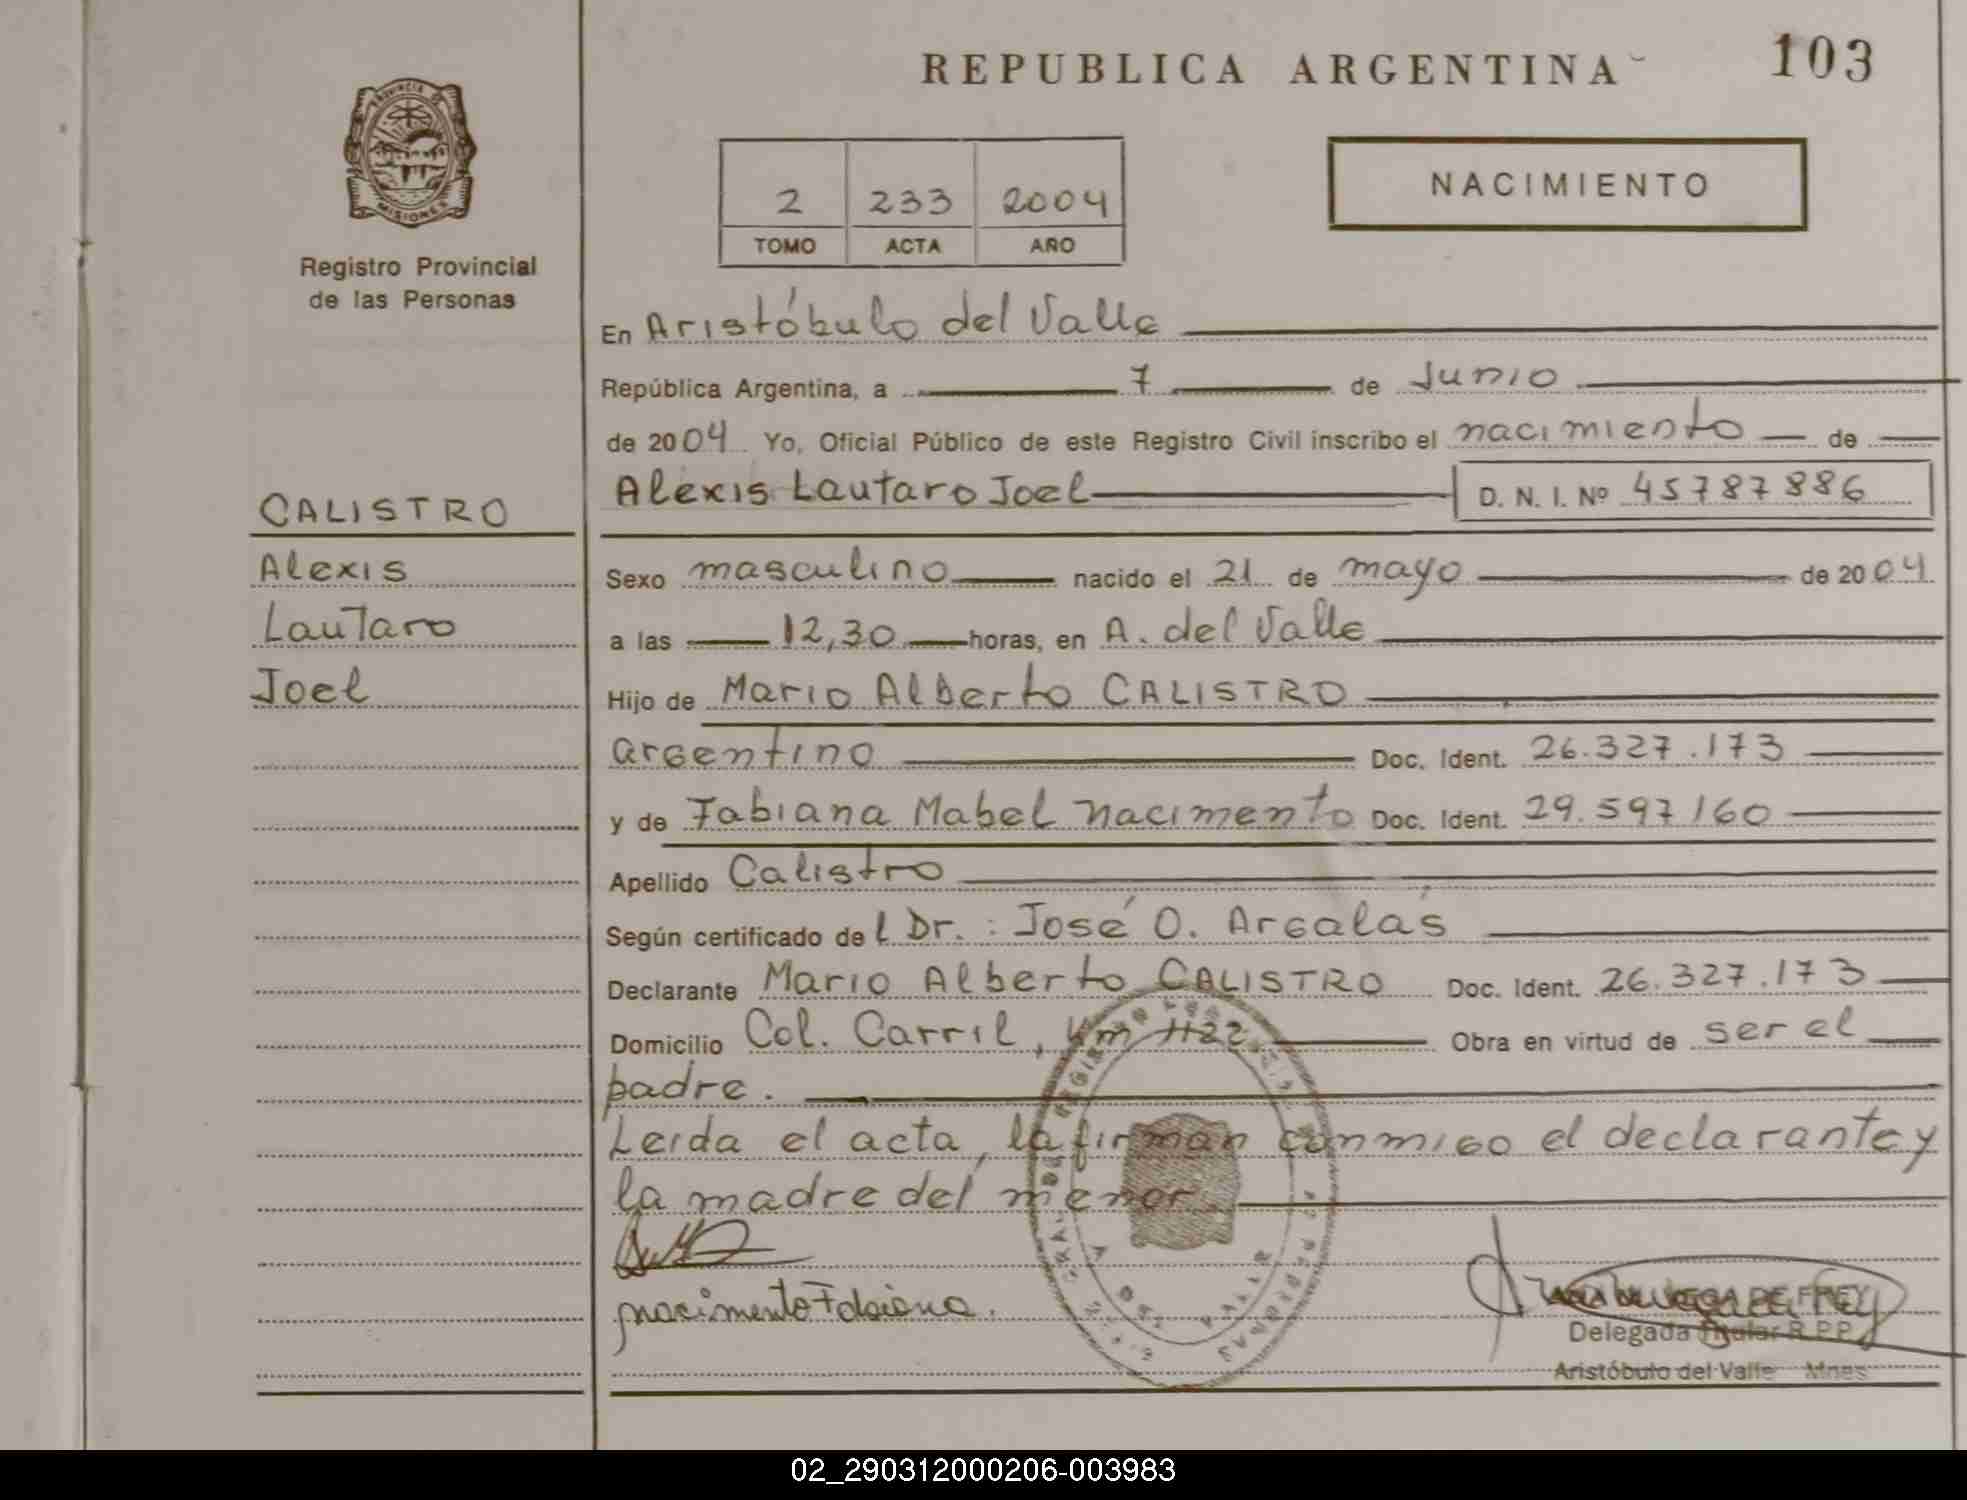 REPUBLICA ARGENTINA
103
PROVINCIA DE
MISIONES
Registro Provincial
de las Personas
2 233 2004
TOMO ACTA AÑO
NACIMIENTO
CALISTRO
Alexis
Lautaro
Joel
En Aristóbulo del Valle
República Argentina, a 7 de Junio
de 2004 Yo, Oficial Público de este Registro Civil inscribo el nacimiento de
Alexis Lautaro Joel D. N. I. Nº 45787886
Sexo masculino nacido el 21 de mayo de 2004
a las 12,30 horas, en A. del Valle
Hijo de Mario Alberto CALISTRO
argentino Doc. Ident. 26.327.173
y de Fabiana Mabel Nacimento Doc. Ident. 29.597160
Apellido Calistro
Según certificado de l Dr. : José O. Argalás
Declarante Mario Alberto CALISTRO Doc. Ident. 26.327.173
Domicilio Col. Carril, Km 1122. Obra en virtud de ser el
padre.
Leida el acta, la firman conmigo el declarante y
la madre del menor.
nacimento Fabiana.
DE FREY
Delegada Titular R.P.P.
Aristóbulo del Valle Mnes
02_290312000206-003983